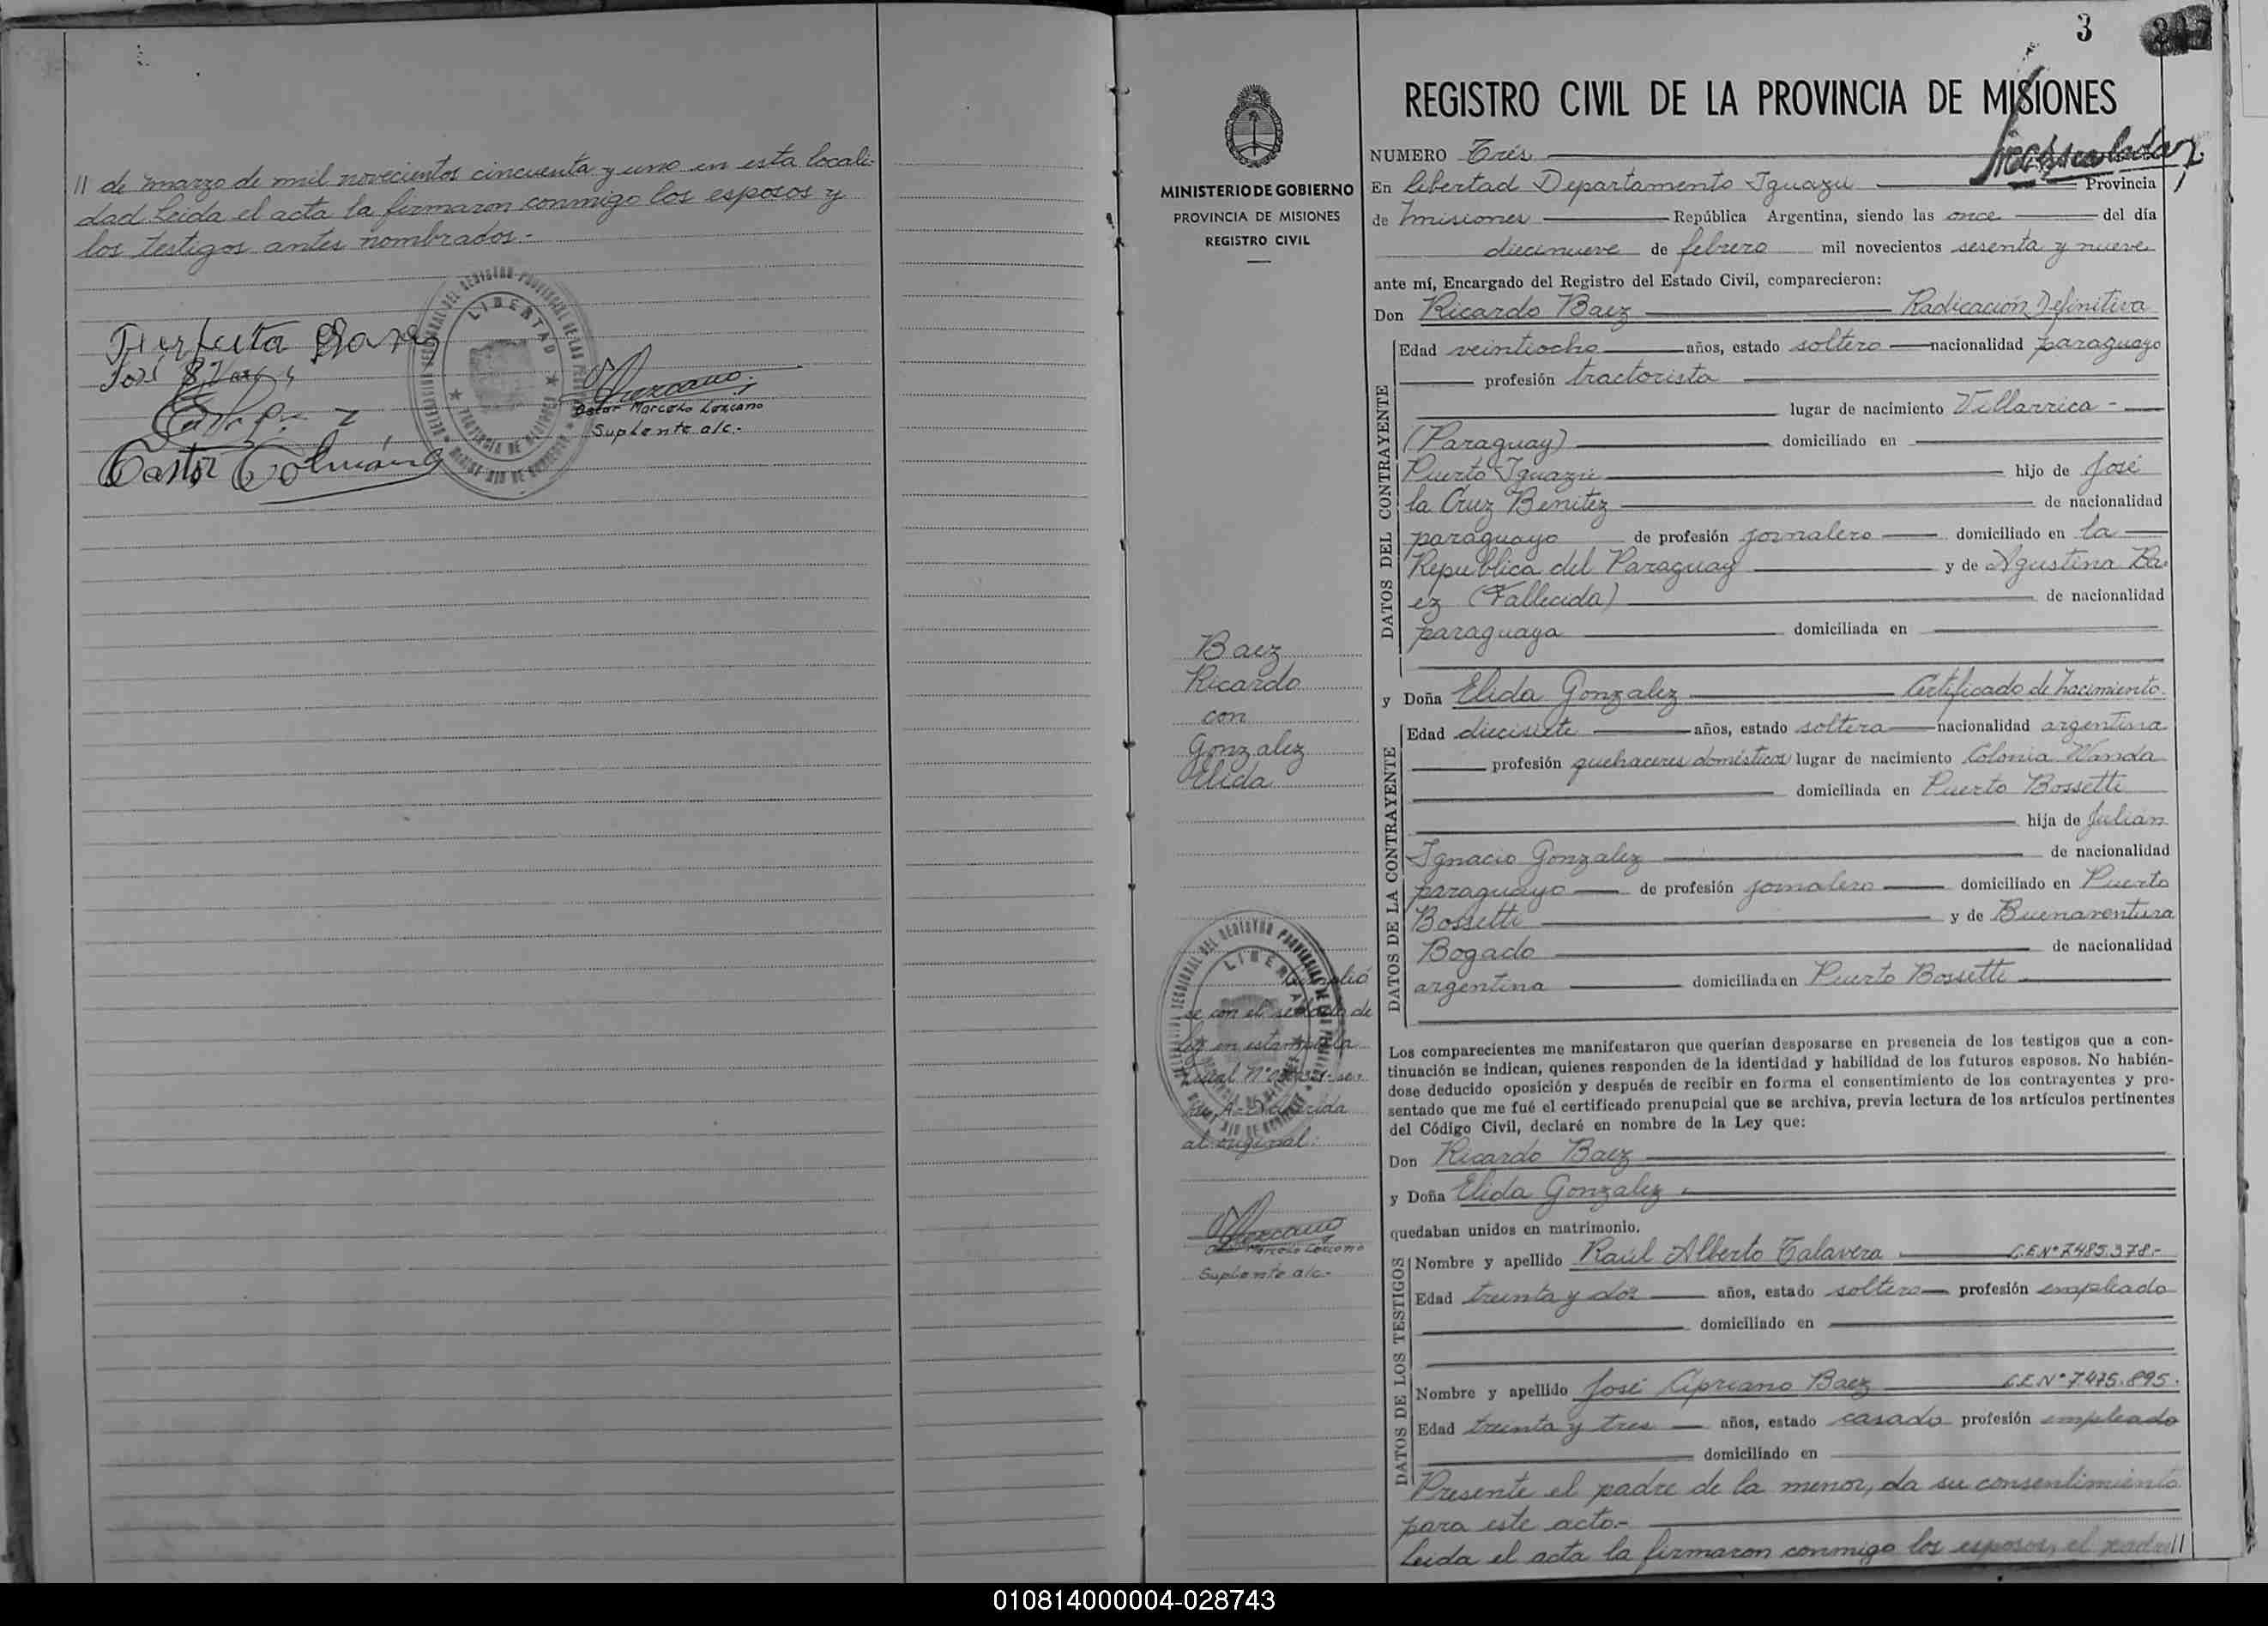 // de marzo de mil novecientos cincuenta y uno en esta locali-
dad Leida el acta la firmaron conmigo los esposos y
los testigos antes nombrados.-
LIBERTAD
Oscar Marcelo Lezcano
Suplente a/c.-
Castor Colmán
3
REGISTRO CIVIL DE LA PROVINCIA DE MISIONES
MINISTERIO DE GOBIERNO
PROVINCIA DE MISIONES
REGISTRO CIVIL
NUMERO Tres
En Libertad Departamento Iguazú Provincia
de Misiones República Argentina, siendo las once del día
diecinueve de febrero mil novecientos sesenta y nueve
ante mí, Encargado del Registro del Estado Civil, comparecieron:
Don Ricardo Baez Radicación Definitiva
DATOS DEL CONTRAYENTE
Edad veintiocho años, estado soltero nacionalidad paraguayo
profesión tractorista
lugar de nacimiento Villarrica -
(Paraguay) domiciliado en
Puerto Iguazú hijo de José
la Cruz Benitez de nacionalidad
paraguayo de profesión jornalero domiciliado en la
Republica del Paraguay y de Agustina Ba-
ez (Fallecida) de nacionalidad
paraguaya domiciliada en
Baez
Ricardo
con
Gonzalez
Elida
y Doña Elida Gonzalez Certificado de nacimiento
DATOS DE LA CONTRAYENTE
Edad diecisiete años, estado soltera nacionalidad argentina
profesión quehaceres domésticos lugar de nacimiento Colonia Wanda
domiciliada en Puerto Bossetti
hija de Julián
Ignacio Gonzalez de nacionalidad
paraguayo de profesión jornalero domiciliado en Puerto
Bossetti y de Buenaventura
Bogado de nacionalidad
argentina domiciliada en Puerto Bossetti
LIBERTAD
se con el sellado de
Ley en estampilla
al original.
Oscar Marcelo Lezcano
Suplente a/c.-
Los comparecientes me manifestaron que querían desposarse en presencia de los testigos que a con-
tinuación se indican, quienes responden de la identidad y habilidad de los futuros esposos. No habién-
dose deducido oposición y después de recibir en forma el consentimiento de los contrayentes y pre-
sentado que me fué el certificado prenupcial que se archiva, previa lectura de los artículos pertinentes
del Código Civil, declaré en nombre de la Ley que:
Don Ricardo Baez
y Doña Elida Gonzalez
quedaban unidos en matrimonio.
DATOS DE LOS TESTIGOS
Nombre y apellido Raúl Alberto Talavera C.E.N° 7.485.378.-
Edad treinta y dos años, estado soltero profesión empleado
domiciliado en
Nombre y apellido José Cipriano Baez C.E.N° 7.475.895.
Edad treinta y tres años, estado casado profesión empleado
domiciliado en
Presente el padre de la menor, da su consentimiento
para este acto.-
Leida el acta la firmaron conmigo los esposos, el padre//
010814000004-028743